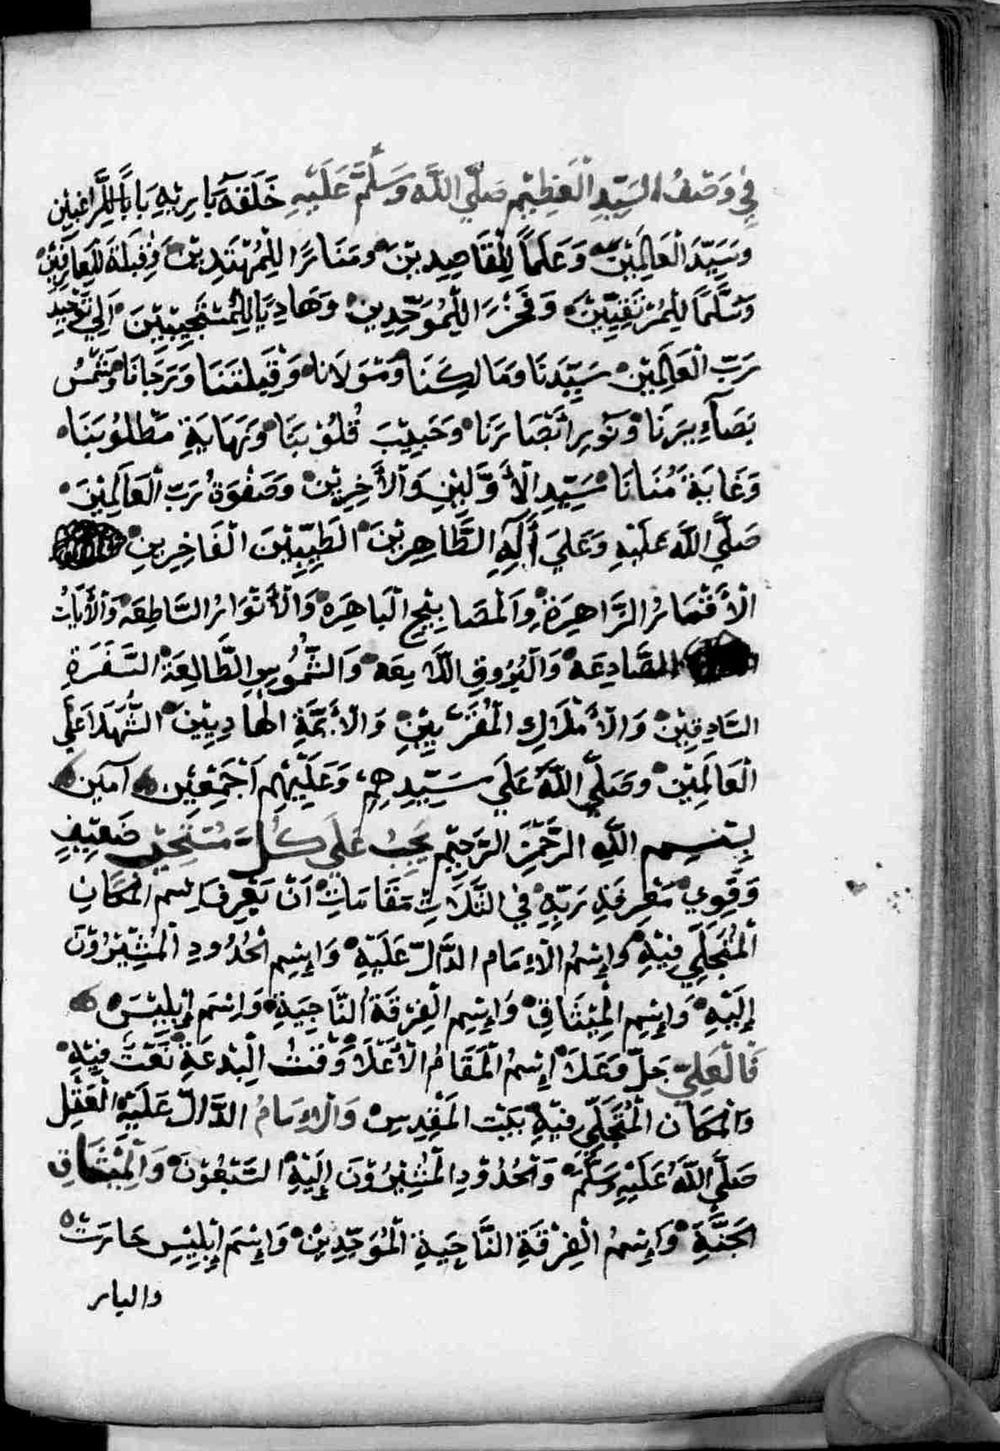 في وَصْفُ السَيِّدِ الْعَظِيْمِ صَلَّي اللَّه وَسَلَّمَّ عَلَيْهِ خَلَقَهُ بَارِيْهِ بَابًا لِلرَّاغِبِيْن
وَسَيِّدَ الْعَالَمِيْنَ وَعَلَماً لِلْقَاصِدِيْنَ ومَنَارًا لِلْمُهْتَدِيْنَ وَقِبْلَةَ لِلعَارِفِيْنَ
وَسُلَّمًا لِلْمُرْتَقِيِّيْنَ وَفَخْرًا لِلْمُوَحِّدِيِنَ وَهَادِيًا لِلْمُسْتَجِيْبِيْنَ اَلِي تَوْحِيْدِ
رَبِّ الْعَالَمِيْنِ سَيِّدَنَا وَمَالِكَنَا وَمَوْلَانَا وَقِبْلَتَنَا وَرَجَانَا وَشَمْسُ
بَصَآءِيرَنَا وَنُوْرِ اَبْصَارَنَا وَحَبِيْبَ قُلُوْبَنَا وَنِهَايَةِ مَطْلُوْبَنَا
وَغَايَةَ مُنَانَا سَيِّدِ الْأَوَّلِيْنِ وَالْأَخِرِيْنَ وَصَفْوَةُ رَبِّ الْعَالَمِيْنَ
صَلَّي اللَّه عَلَيْهِ وَعَلَي أَلِهِ الطَّاهِرِيْنَ الطَيِّبِيْنَ الْفَاخِرِينِ
الْأَقْمَارُ الزَّاهِرَةِ وَالْمَصَابِيْحِ الْبَاهِرَه وَالْأَنْوَارُ السَّاطِعَه وَالْأَيَاتُ
الصَّادِعَه وَالْبُرُوقِ اللَّامِعَه وَالشُّمُوسِ الطَّالِعَةِ السَّفَرَةِ
السَّادِقِيْنَ وَالْأَمْلَاكِ الْمُقَرَّبِيْنِ وَالْأَئِمَّةِ الهَادِيِيْنَ الشُّهَدَا عَلَي
الْعَالَمِيْن وصَلَّي اللَّهُ عَلَي سَيِّدِهِمِ وَعَلَيْهِمِ اَجْمَعِيْن آمين
بِسْمِ اللَّهِ الرَّحْمَنِ الرَّحِيْمِ يَجِبُ عَلَي كُلِّ ضَعِيْفٍ
وَقَوِيٍ مَعْرِفَةِ رَبِّهِ فِي الثَّلَاثِ مَقَامَاتِ أَنْ يَعْرِفَ اِسْمِ الْمَكَانِ
الْمُتَجَلِّي فِيْهِ وَاِسْمُ الْاِمَام الدَّالّ عَلَيْهِ وَاِسْمِ الْحُدُودِ الْمُشِيْرُوْنَ
إِلَيْهِ وَاِسْمِ الْمِيْثَاقِ وَاِسْمِ الْفِرْقَةُ النَّاجِيَةِ وَاِسْمَ إِبْلِيْسَ
فَالْعَلِيّ جَلَّ وَعَلَا اِسْمُ الْمَقَامُ الْأَعْلَا وَقْتُ الْبِدْعَةِ نَعْتَ فِيْهِ
وَالْمَكَانُ الْمُتَجَلِّي فِيْهِ بَيْت الْمَقْدِسِ وَالْاِمَامُ الدَّالّ عَلَيْهِ الْعَقْلِ
صَلَّي اللَّهُ عَلَيْهِ وَسَلَّمَ وَالْحُدُوْدِ الْمُشِيْرُوْنَ إِلَيْهِ السَّبْعُوْنَ وَالْمِيْثَاقِ
الْجَنَّةِ وَاِسْمُ الْفِرْقَةِ النَّاجِيَةِ الْمُوَحِّدِيْنَ وَاِسْمَ إِبْلِيْسِ حَارَت
والبار